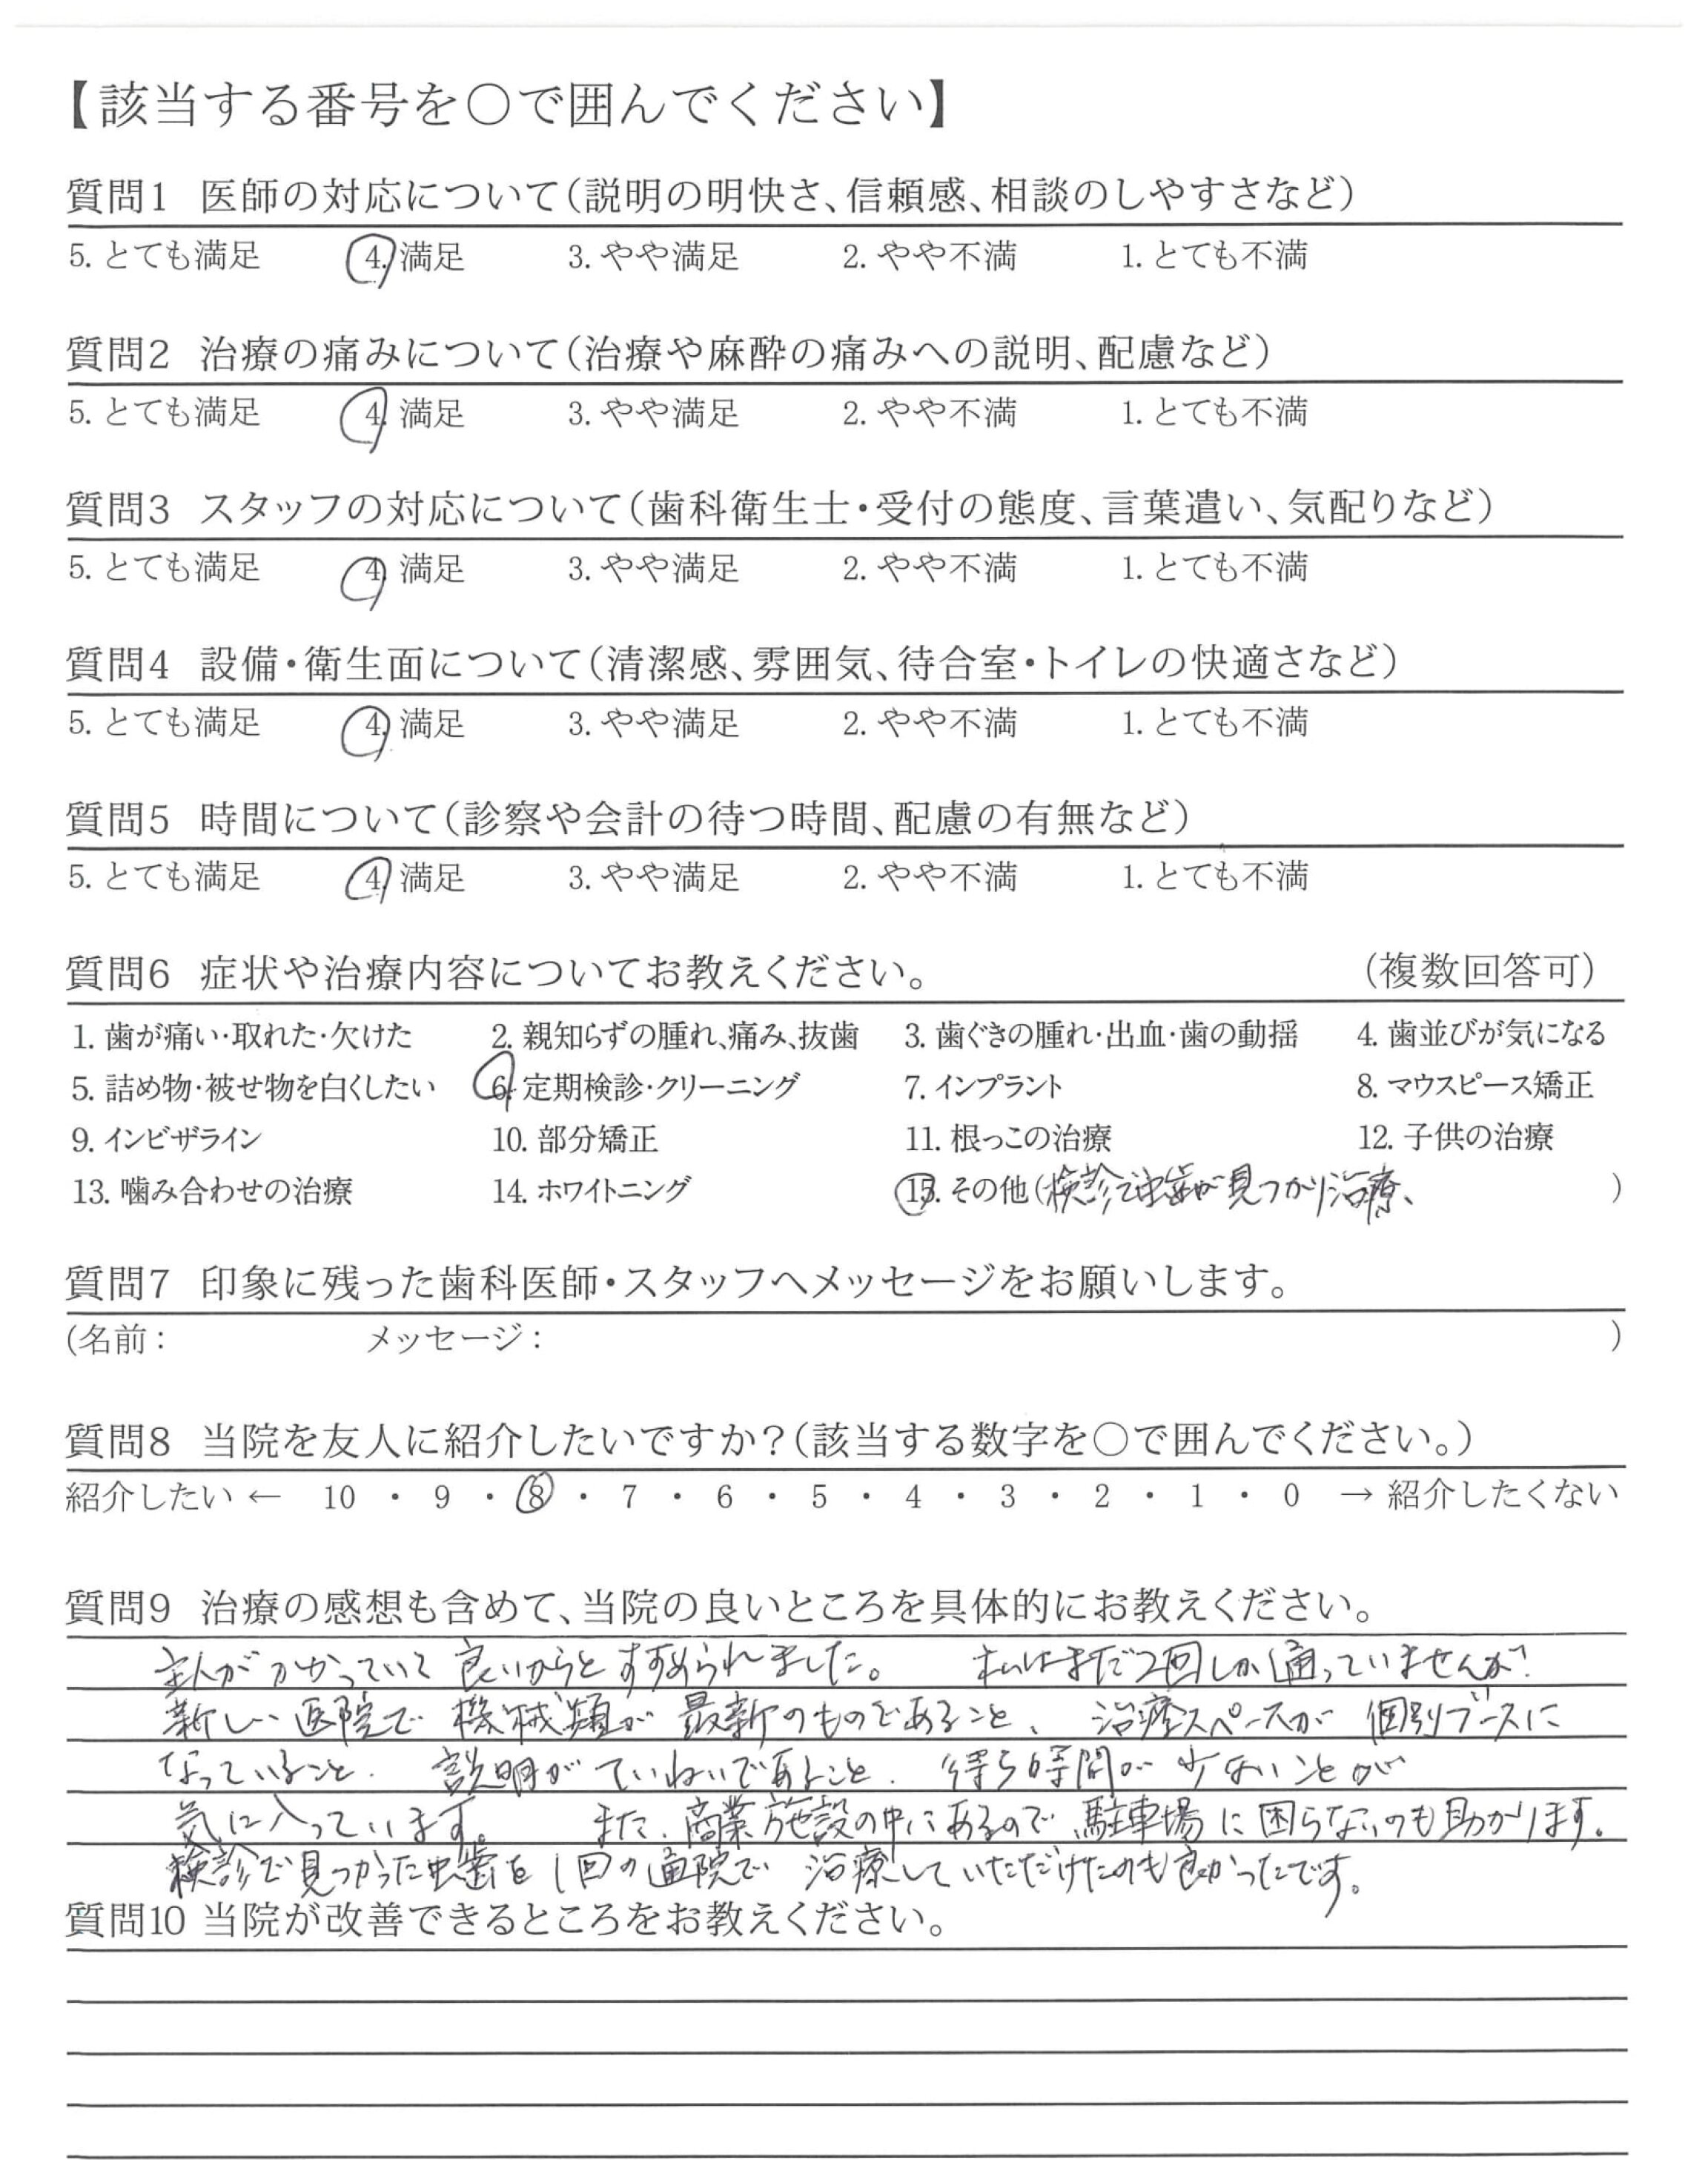 【該当する番号を〇で囲んでください】
質問1 医師の対応について（説明の明快さ、信頼感、相談のしやすさなど）
5. とても満足 4. 満足 3. やや満足 2. やや不満 1. とても不満
質問2 治療の痛みについて（治療や麻酔の痛みへの説明、配慮など）
5. とても満足 4. 満足 3. やや満足 2. やや不満 1. とても不満
質問3 スタッフの対応について（歯科衛生士・受付の態度、言葉遣い、気配りなど）
5. とても満足 4. 満足 3. やや満足 2. やや不満 1. とても不満
質問4 設備・衛生面について（清潔感、雰囲気、待合室・トイレの快適さなど）
5. とても満足 4. 満足 3. やや満足 2. やや不満 1. とても不満
質問5 時間について（診察や会計の待つ時間、配慮の有無など）
5. とても満足 4. 満足 3. やや満足 2. やや不満 1. とても不満
質問6 症状や治療内容についてお教えください。 （複数回答可）
1. 歯が痛い・取れた・欠けた 2. 親知らずの腫れ、痛み、抜歯 3. 歯ぐきの腫れ・出血・歯の動揺 4. 歯並びが気になる
5. 詰め物・被せ物を白くしたい 6. 定期検診・クリーニング 7. インプラント 8. マウスピース矯正
9. インビザライン 10. 部分矯正 11. 根っこの治療 12. 子供の治療
13. 噛み合わせの治療 14. ホワイトニング 15. その他（検診で虫歯が見つかり治療、 ）
質問7 印象に残った歯科医師・スタッフへメッセージをお願いします。
（名前： メッセージ： ）
質問8 当院を友人に紹介したいですか？（該当する数字を〇で囲んでください。）
紹介したい ← 10 ・ 9 ・ 8 ・ 7 ・ 6 ・ 5 ・ 4 ・ 3 ・ 2 ・ 1 ・ 0 → 紹介したくない
質問9 治療の感想も含めて、当院の良いところを具体的にお教えください。
主人がかかっていて良いからとすすめられました。 私はまだ2回しか通っていませんが
新しい医院で機械類が最新のものであること、治療スペースが個別ブースに
なっていること、説明がていねいであること、待ち時間が少ないことが
気に入っています。 また、商業施設の中にあるので駐車場に困らないのも助かります。
検診で見つかった虫歯を1回の通院で治療していただけたのも良かったです。
質問10 当院が改善できるところをお教えください。